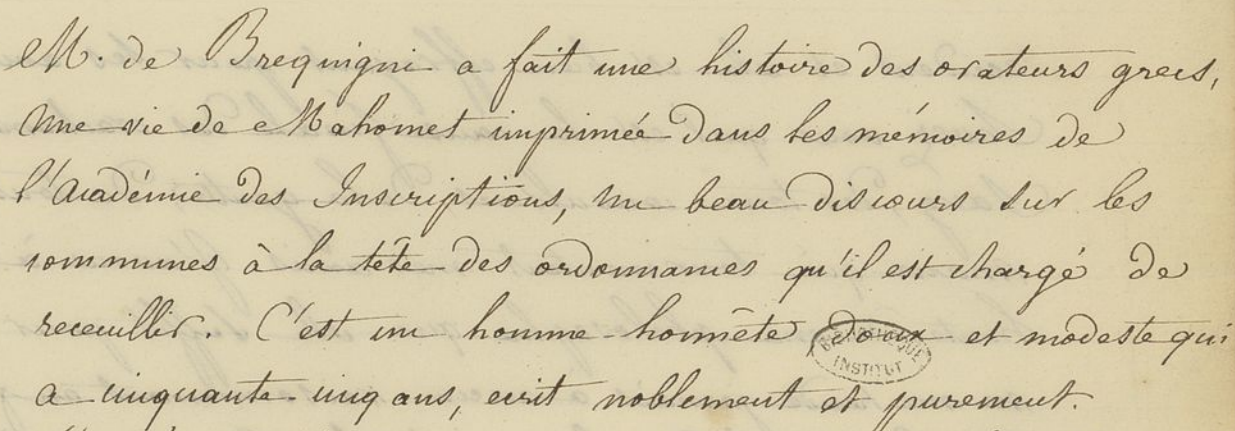 M. de Brequigni a fait une histoire des orateurs grecs,
une vie de Mahomet imprimée dans les mémoires de
l'Académie des Inscriptions, un beau discours sur les
communes à la tête des ordonnances qu'il est chargé de
receuillir. C'est un homme honnête doux et modeste qui
BIBLIOTHEQUE
INSTITUT
a cinquante-cinq ans, ecrit noblement et purement.